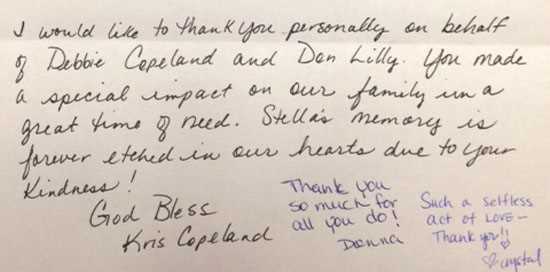 I would like to thank you personally on behalf
of Debbie Copeland and Don Lilly. You made
a special impact on our family in a
great time of need. Stella's memory is
forever etched in our hearts due to your
Kindness!
God Bless
Kris Copeland
Thank you
so much for
all you do!
Donna
Such a selfless
act of LOVE –
Thank you!!
♡ Crystal